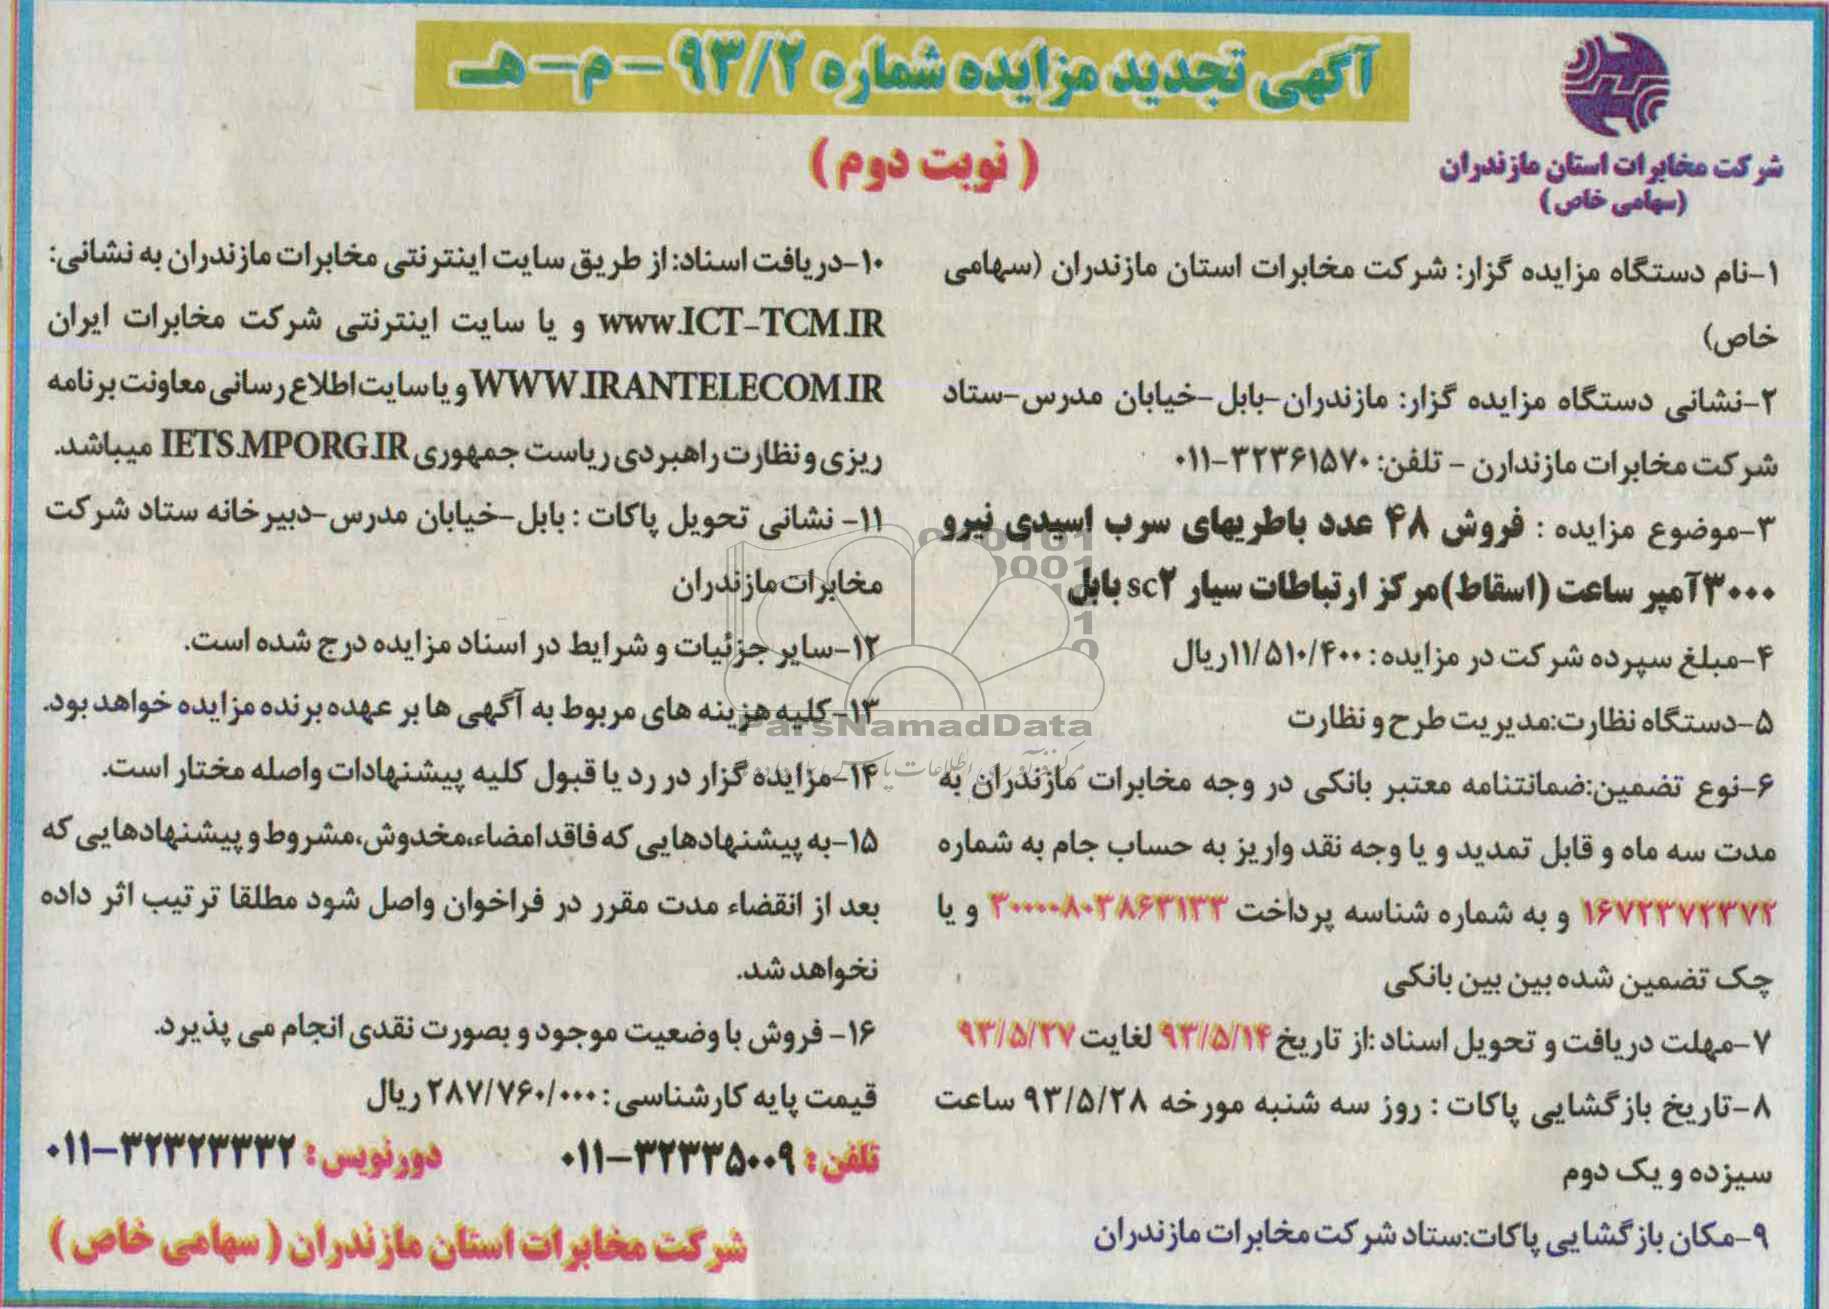 آگهی تجدید مزایده شماره ۹۳/۲ - م - هـ
( نوبت دوم )
شرکت مخابرات استان مازندران
(سهامی خاص)
۱-نام دستگاه مزایده گزار: شرکت مخابرات استان مازندران (سهامی
خاص)
۲-نشانی دستگاه مزایده گزار: مازندران-بابل-خیابان مدرس-ستاد
شرکت مخابرات مازندارن - تلفن: ۰۱۱-۳۲۳۶۱۵۷۰
۳-موضوع مزایده : فروش ۴۸ عدد باطریهای سرب اسیدی نیرو
۳۰۰۰آمپر ساعت (اسقاط)مرکز ارتباطات سیار sc۲ بابل
۴-مبلغ سپرده شرکت در مزایده: ۱۱/۵۱۰/۴۰۰ریال
۵-دستگاه نظارت:مدیریت طرح و نظارت
۶-نوع تضمین:ضمانتنامه معتبر بانکی در وجه مخابرات مازندران به
مدت سه ماه و قابل تمدید و یا وجه نقد واریز به حساب جام به شماره
۱۶۷۲۳۷۲۳۷۲ و به شماره شناسه پرداخت ۳۰۰۰۰۸۰۳۸۶۳۱۳۳ و یا
چک تضمین شده بین بین بانکی
۷-مهلت دریافت و تحویل اسناد :از تاریخ ۹۳/۵/۱۴ لغایت ۹۳/۵/۲۷
۸-تاریخ بازگشایی پاکات : روز سه شنبه مورخه ۹۳/۵/۲۸ ساعت
سیزده و یک دوم
۹-مکان بازگشایی پاکات:ستاد شرکت مخابرات مازندران
۱۰-دریافت اسناد: از طریق سایت اینترنتی مخابرات مازندران به نشانی:
www.ICT-TCM.IR و یا سایت اینترنتی شرکت مخابرات ایران
WWW.IRANTELECOM.IR و یا سایت اطلاع رسانی معاونت برنامه
ریزی و نظارت راهبردی ریاست جمهوری IETS.MPORG.IR میباشد.
۱۱- نشانی تحویل پاکات : بابل-خیابان مدرس-دبیرخانه ستاد شرکت
مخابرات مازندران
۱۲-سایر جزئیات و شرایط در اسناد مزایده درج شده است.
۱۳-کلیه هزینه های مربوط به آگهی ها بر عهده برنده مزایده خواهد بود.
۱۴-مزایده گزار در رد یا قبول کلیه پیشنهادات واصله مختار است.
۱۵-به پیشنهادهایی که فاقد امضاء،مخدوش،مشروط و پیشنهادهایی که
بعد از انقضاء مدت مقرر در فراخوان واصل شود مطلقا ترتیب اثر داده
نخواهد شد.
۱۶- فروش با وضعیت موجود و بصورت نقدی انجام می پذیرد.
قیمت پایه کارشناسی : ۲۸۷/۷۶۰/۰۰۰ ریال
تلفن : ۰۱۱-۳۲۳۳۵۰۰۹ دورنویس : ۰۱۱-۳۲۳۲۳۳۳۲
شرکت مخابرات استان مازندران ( سهامی خاص )
ParsNamadData